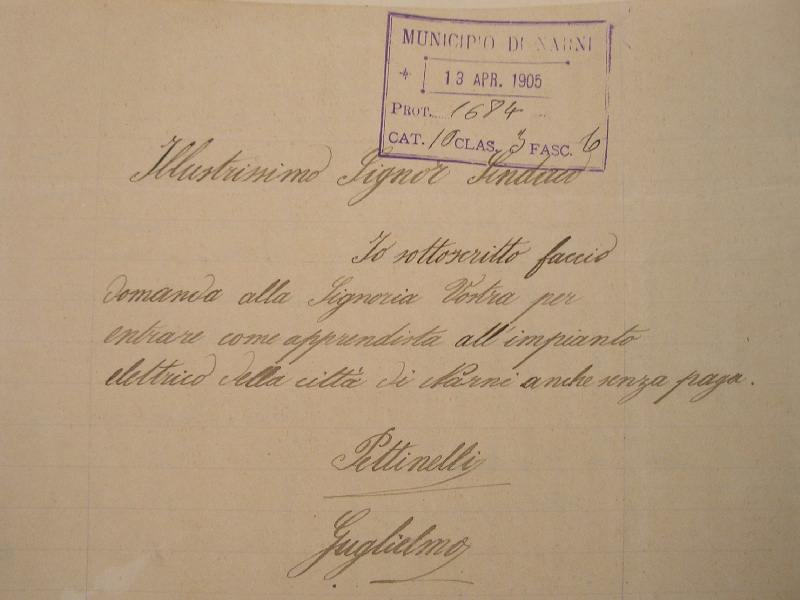 MUNICIPIO DI NARNI
13 APR. 1905
PROT. 1684
CAT. 10 CLAS. 3 FASC. 6
Illustrissimo Signor Sindaco
Io sottoscritto faccio
domanda alla Signoria Vostra per
entrare come apprendista all'impianto
elettrico della città di Narni anche senza paga.
Pettinelli
Guglielmo